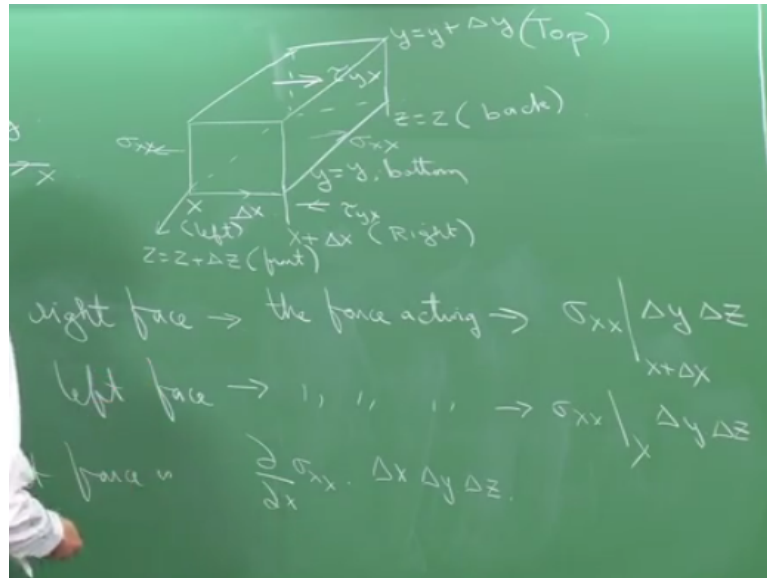 y=y+Δy (Top)
τyx
z=z (back)
σxx
σxx
x
y=y, bottom
x Δx
τyx
(left)
x+Δx (Right)
z=z+Δz (front)
right face → the force acting → σxx|x+Δx Δy Δz
left face → ,, ,, ,, → σxx|x Δy Δz
force is ∂/∂x σxx. Δx Δy Δz.